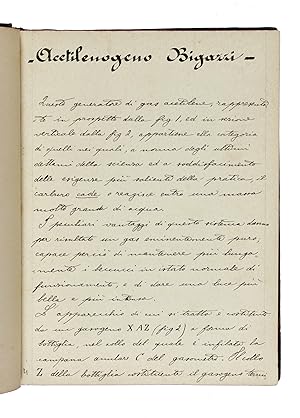 - Acetilenogeno Bigazzi -
Questo generatore di gas acetilene, rappresenta
to in prospetto dalla fig 1, ed in sezione
verticale dalla fig 2, appartiene alla categoria
di quelli nei quali, a norma degli ultimi
dettami della scienza ed a soddisfacimento
delle esigenze più salienti della pratica il
carburo cade e reagisce entro una massa
molto grande di acqua.
I peculiari vantaggi di questo sistema danno
per risultato un gas eminentemente puro,
capace perciò di mantenere più lunga,
mente i beccucci in istato normale di
funzionamento, e di dare una luce più
bella e più intensa.
L'apparecchio di cui si tratta è costituito
da un gazogeno XAZ (fig 2) a forma di
bottiglia, nel collo del quale è infilata la
campana anulare C del gasometro. Il collo
Z della bottiglia costituente il gazogeno